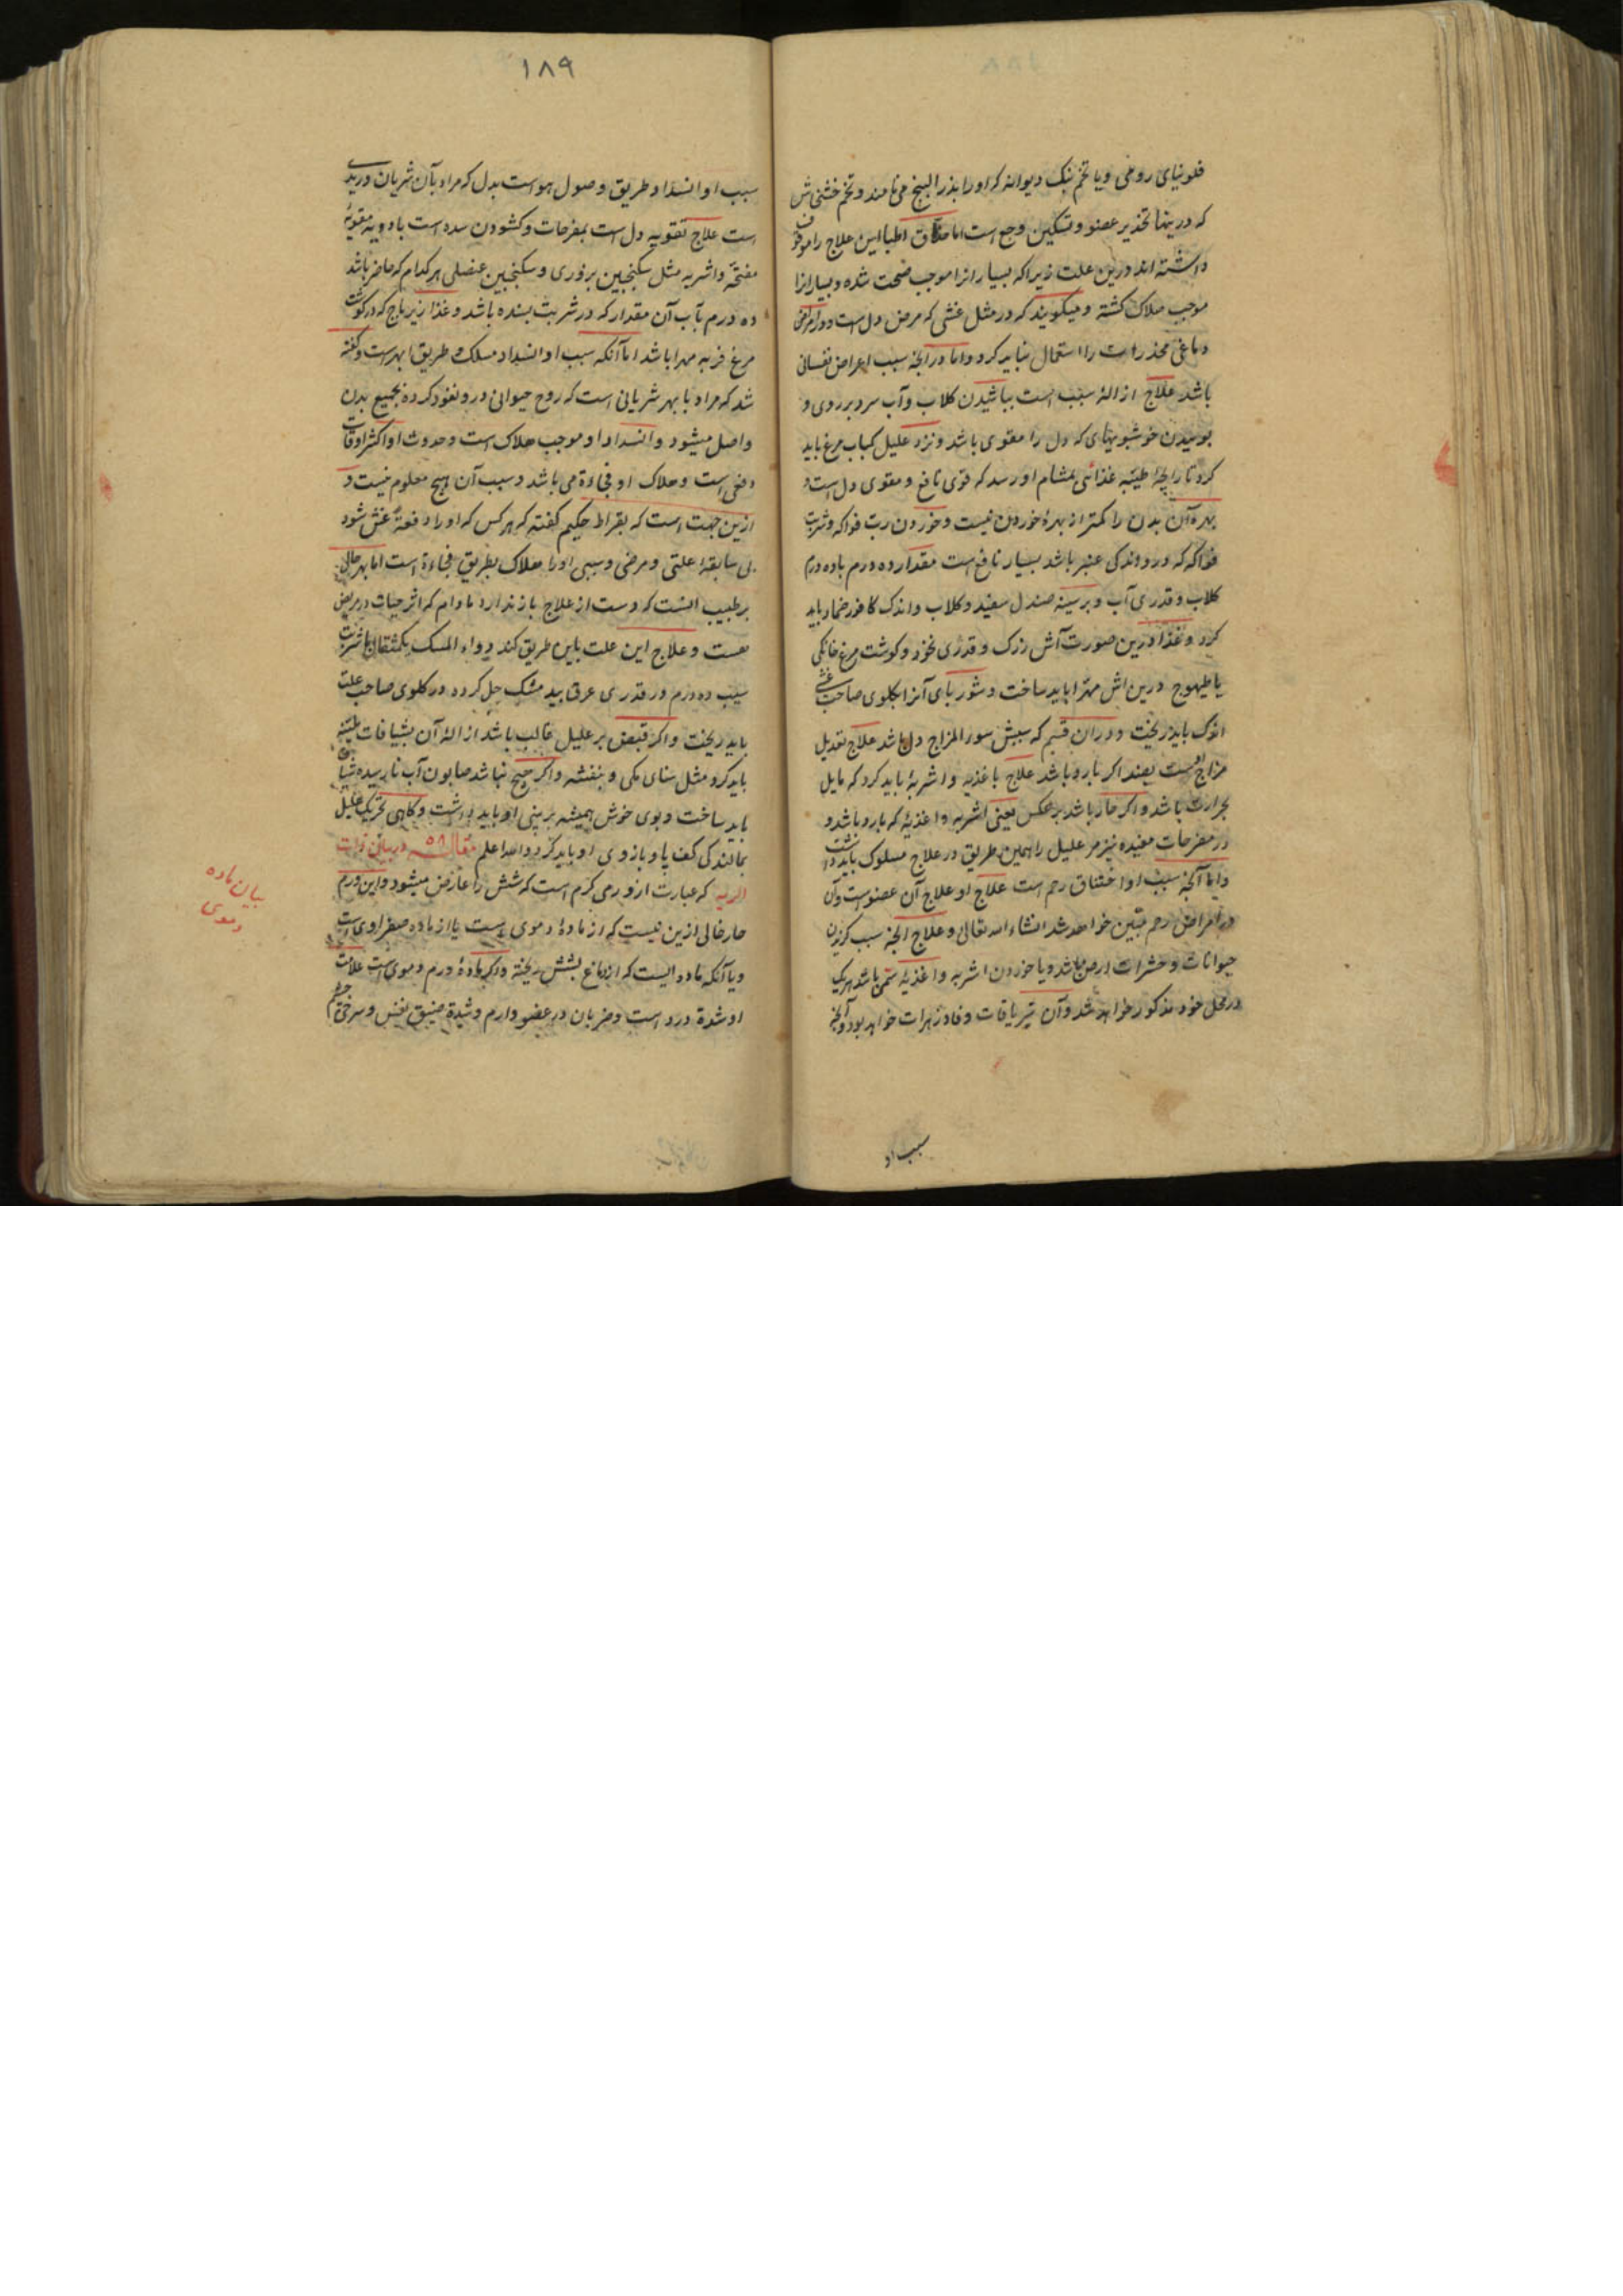 فلونیای رومی ویا تخم بنک دیوانه که اورا بذر البنج می نامند وتخم خشخاش
که درینها تخدیر عضو وتسکین وجع است اما حذاق اطبا این علاج را موقوف
داشته اند درین علت زیرا که بسیار انرا موجب صحت شده وبسیار انرا
موجب هلاک کشته ومیکویند که در مثل غشی که مرض دل است ودر امراض
دماغی مخدرات را استعمال نباید کرد واما در انجه سبب اعراض نفسانی
باشد علاج ازالهٔ سبب است بپاشیدن کلاب وآب سرد بر روی و
بوییدن خوشبویهای که دل را مقوی باشد ونزد علیل کباب مرغ باید
کرد تا رایحهٔ طیبه غذائی بمشام او رسد که قوی نافع ومقوی دل است و
بهره آن بدن را کمتر از بهرهٔ خوردن نیست وخوردن رب فواکه وشربت
فواکه که درو اندکی عنبر باشد بسیار نافع است مقدار ده درم باده درم
کلاب وقدری آب وبر سینه صندل سفید وکلاب واندک کافور ضماد باید
کرد وغذا درین صورت آش زرک وقدری نخود وکوشت مرغ خانکی
یا طیهوج درین اش مهرا باید ساخت وشوربای آنرا بکلوی صاحب غشی
اندک باید ریخت ودر ان قسم که سببش سوء المزاج دل باشد علاج تعدیل
مزاج است بضد اکر بارد باشد علاج باغذیه واشربهٔ باید کرد که مایل
بحرارت باشد واکر حار باشد بر عکس یعنی اشربه واغذیهٔ که بارد باشد و
در مفرحات مفیده نیز مر علیل را همین طریق در علاج مسلوک باید داشت
واما آنجه سبب او اختناق رحم است علاج او علاج آن عضو است وآن
در امراض رحم مبین خواهد شد انشاء الله تعالی وعلاج انجه سبب کزیدن
حیوانات وحشرات ارض باشد ویا خوردن اشربه واغذیهٔ سمی باشد هریک
در محل خود مذکور خواهد شد وآن تریاقات وفادزهرات خواهد بود وآنجه
سبب او
۱۸۹
سبب او انسداد طریق وصول هواست بدل که مراد بآن شریان وریدی
است علاج تقویه دل است بمفرحات وکشودن سده است بادویه مقویهٔ
مفتحه واشربه مثل سکنجبین بزوری وسکنجبین عنصلی هر کدام که حاضر باشد
ده درم بآب آن مقدار که در شربت بسنده باشد وغذا زیرباج که در کوشت
مرغ فربه مهرا باشد اما آنکه سبب او انسداد مسلک وطریق ابهر است وکفته
شد که مراد بابهر شریانی است که روح حیوانی درو نفوذ کرده بجمیع بدن
واصل میشود وانسداد او موجب هلاک است وحدوث او اکثر اوقات
دفعی است وهلاک او فجاءة می باشد وسبب آن هیج معلوم نیست و
ازین جهت است که بقراط حکیم کفته که هر کس که او را دفعةً غش شود
بی سابقهٔ علتی ومرضی وسببی اورا هلاک بطریق فجاءة است اما بهر حال
بر طبیب انست که دست از علاج باز ندارد مادام که اثر حیات در مریض
هست وعلاج این علت باین طریق کند دواء المسک یکمثقال با شربت
سیب ده درم در قدری عرق بید مشک حل کرده در کلوی صاحب علت
باید ریخت واکر قبض بر علیل غالب باشد ازالهٔ آن بشیافات ملینه
باید کرد مثل سنای مکی وبنفشه واکر هیج نباشد صابون آب نارسیده شیاف
باید ساخت وبوی خوش همیشه بر بینی او باید داشت وکاهی تحریک علیل
بمالندکی کف پا وبازوی او باید کرد والله اعلم مقاله ۵۸ در بیان ذات
الریه که عبارت از ورمی کرم است که شش را عارض میشود واین ورم
حار خالی ازین نیست که از مادهٔ دموی است یا از ماده صفراوی است
ویا آنکه ماده ایست که از دماغ بشش ریخته واکر مادهٔ ورم دموی است علامت
او شدة درد است وضربان در عضو وارم وشدة ضیق نفس وسرخی چشم
بیان ماده
دموی